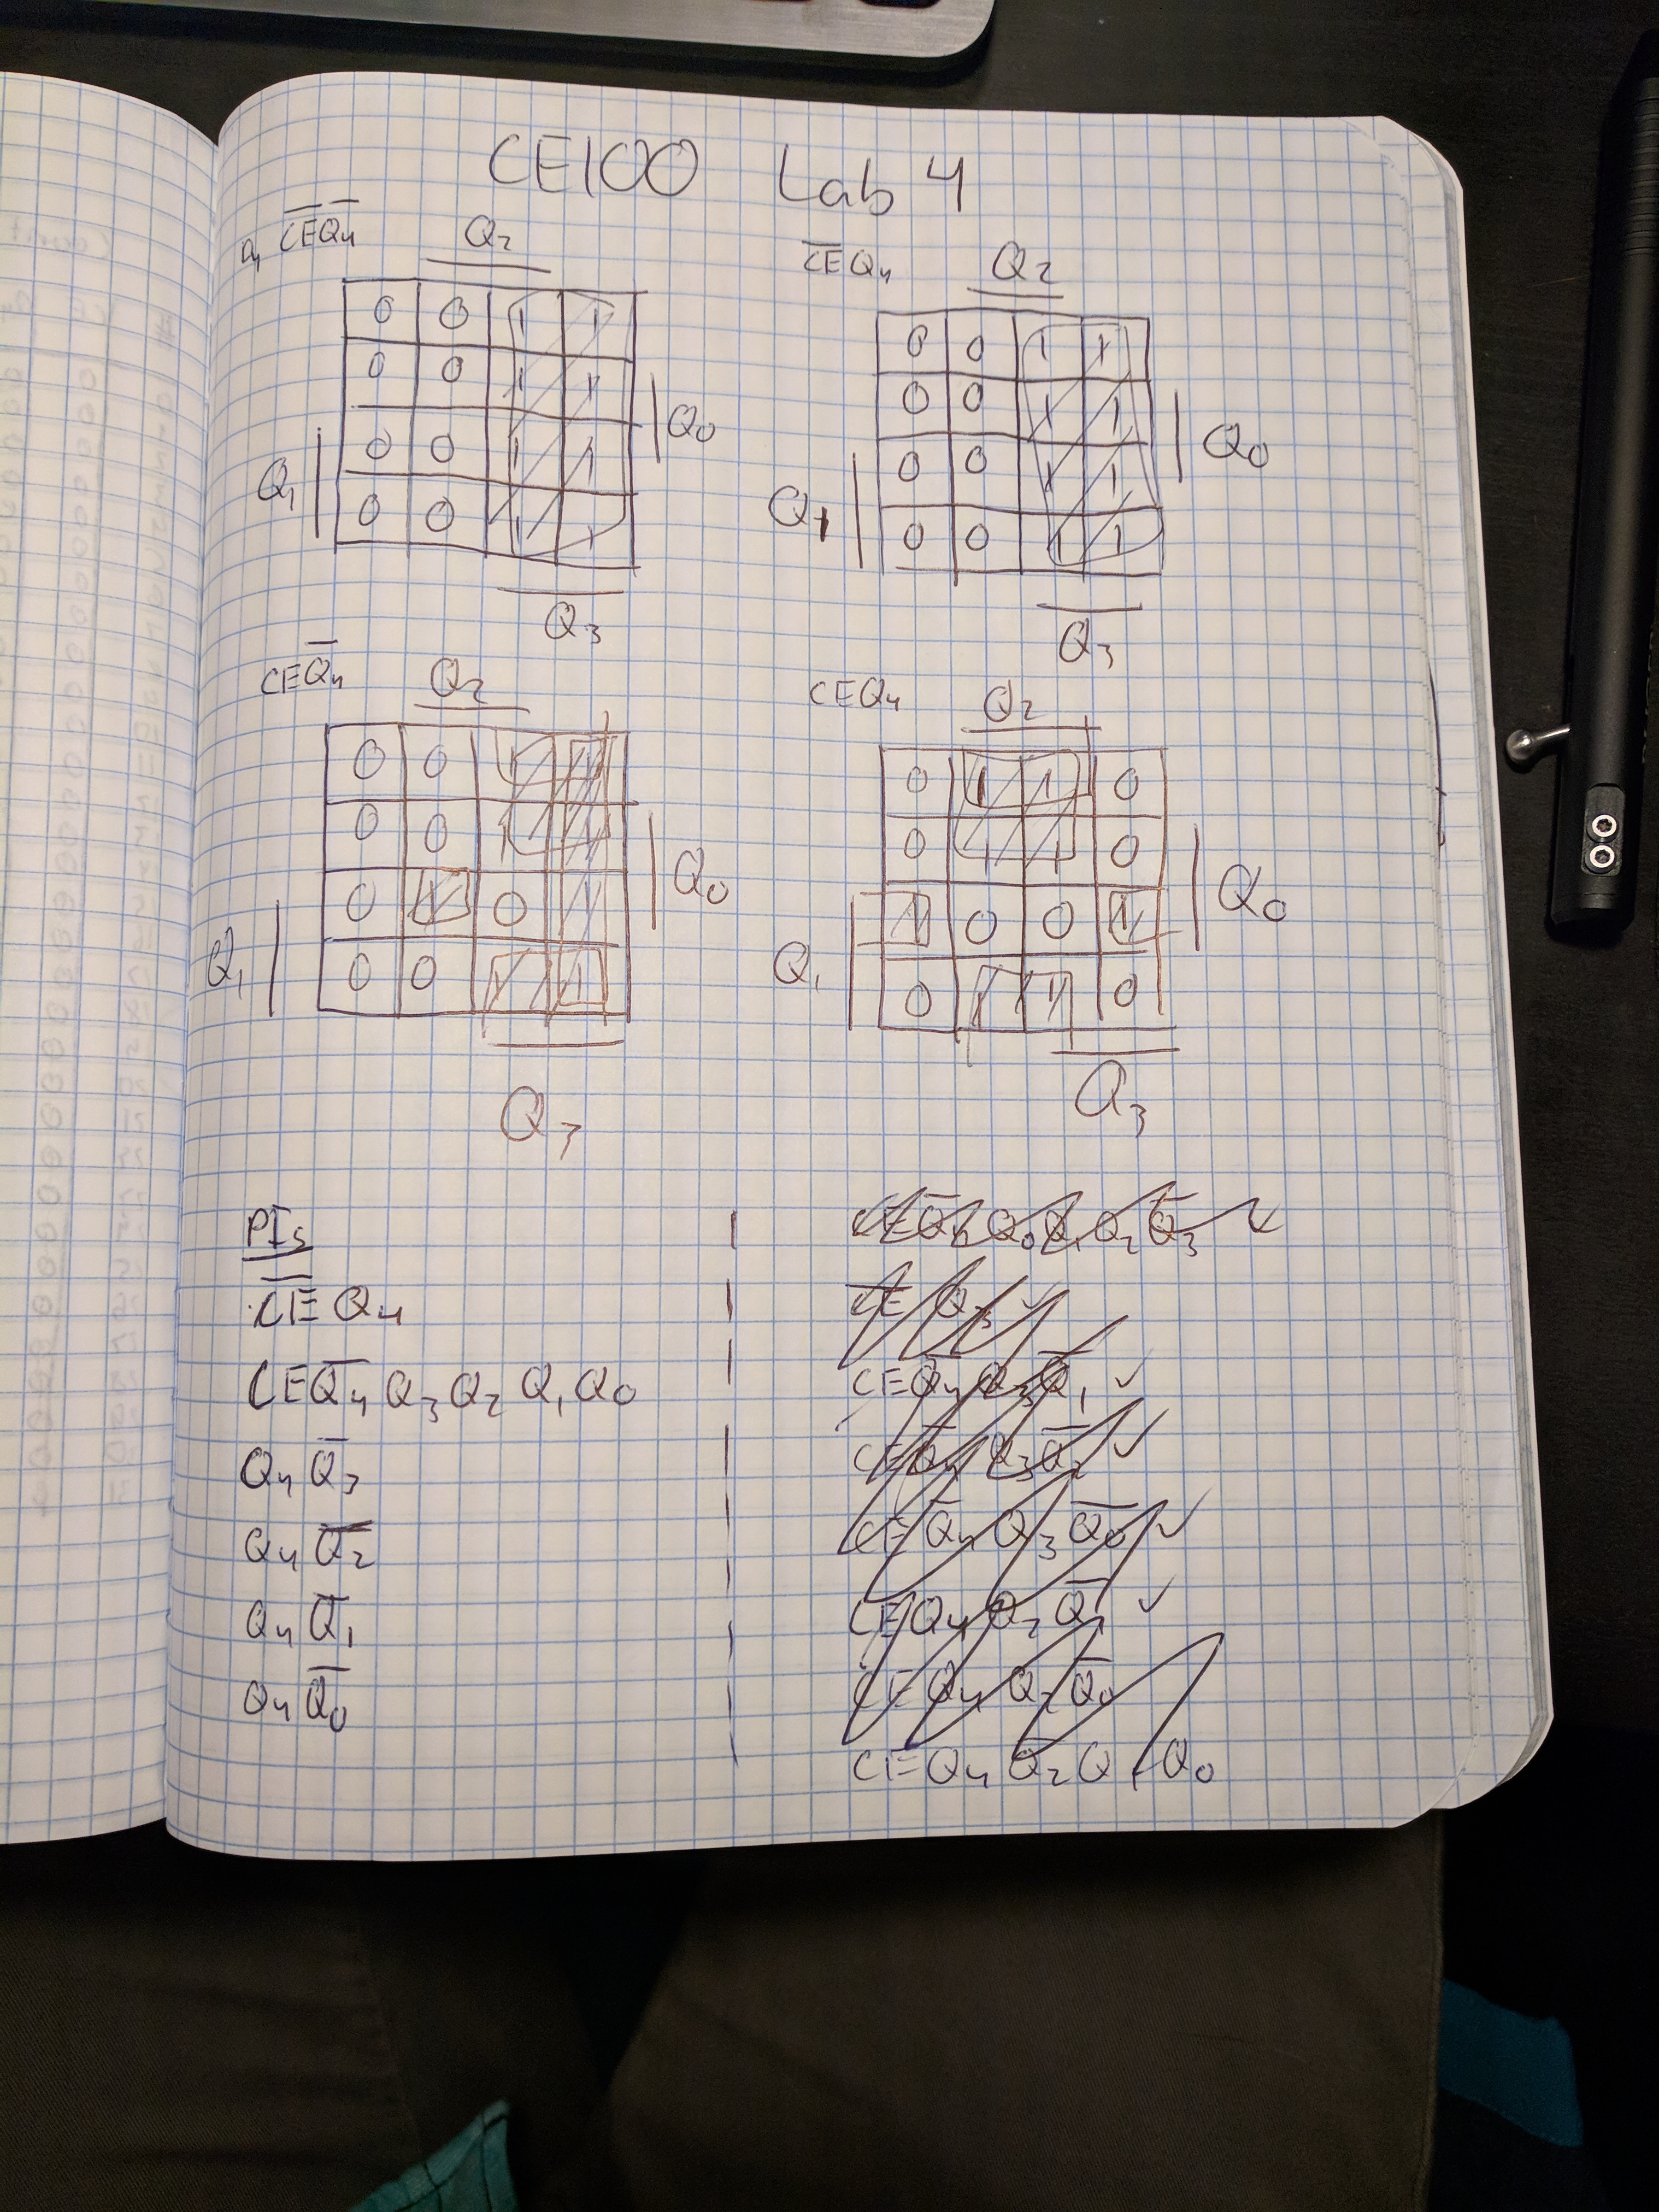 CE100 Lab 4
C̅E̅Q̅₄ Q₂
0 0 1 1
0 0 1 1
Q₀
0 0 1 1
Q₁
0 0 1 1
Q₃
C̅E̅Q₄ Q₂
0 0 1 1
0 0 1 1
Q₀
0 0 1 1
Q₁
0 0 1 1
Q₃
CEQ̅₄ Q₂
0 0 1 1
0 0 1 1
Q₀
0 1 0 1
Q₁
0 0 1 1
Q₃
CEQ₄ Q₂
0 1 1 0
0 1 1 0
Q₀
1 0 0 1
Q₁
0 1 1 0
Q₃
PIs
C̅E̅ Q₄
CEQ̅₄ Q₃ Q₂ Q₁ Q₀
Q₄ Q̅₃
Q₄ Q̅₂
Q₄ Q̅₁
Q₄ Q̅₀
C̅E̅ Q₃ ✓
CEQ̅₄ Q₃ Q̅₁ ✓
CEQ̅₄ Q₃ Q̅₂ ✓
CEQ̅₄ Q₃ Q̅₀ ✓
CEQ₄ Q₂ Q̅₁ ✓
CEQ₄ Q₂ Q̅₀
CEQ₄ Q̅₂ Q₁ Q₀